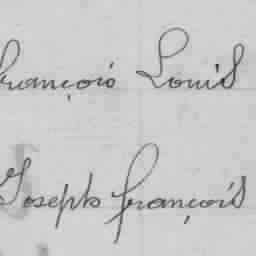 françois Louis
Joseph françois